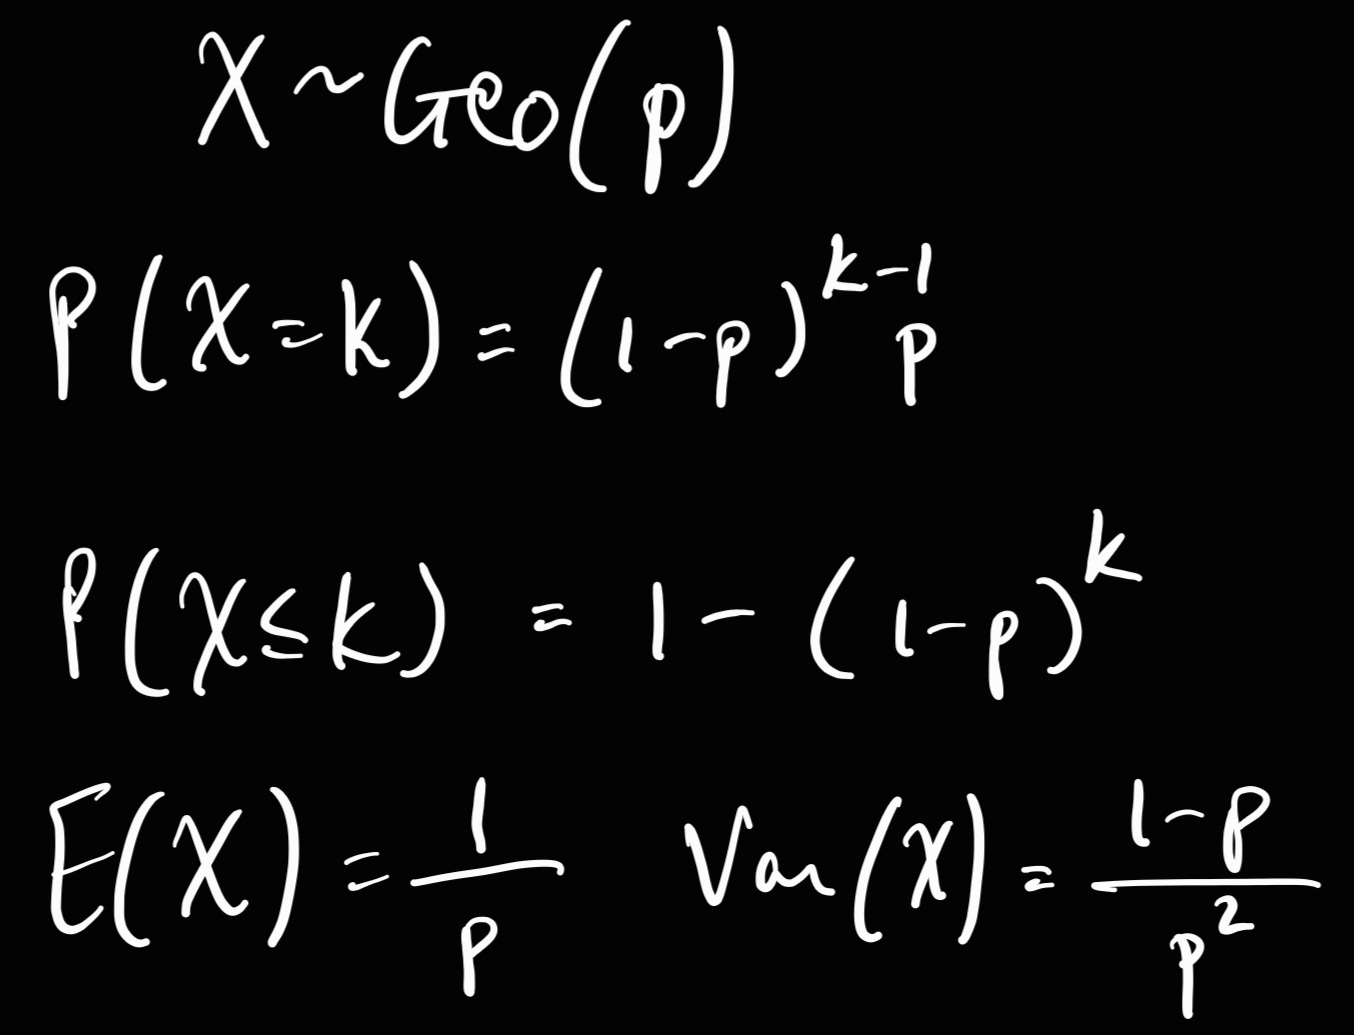 X ~ Geo(p)
P(X=k) = (1-p)^{k-1} p
P(X≤k) = 1 - (1-p)^k
E(X) = \frac{1}{p} Var(X) = \frac{1-p}{p^2}